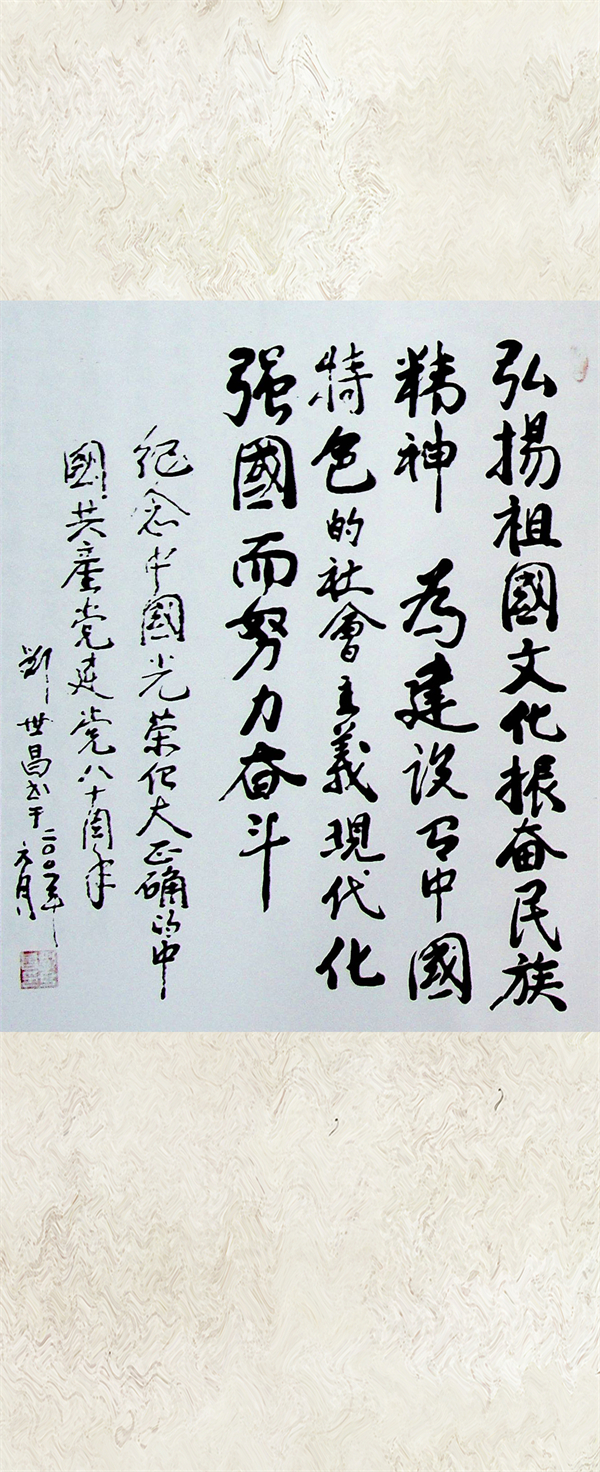 弘揚祖國文化振奋民族
精神 為建設有中國
特色的社會主義現代化
强國而努力奋斗
纪念中國光荣伟大正确的中
國共產党建党八十周年
鄧世昌书于二〇〇一年
元月